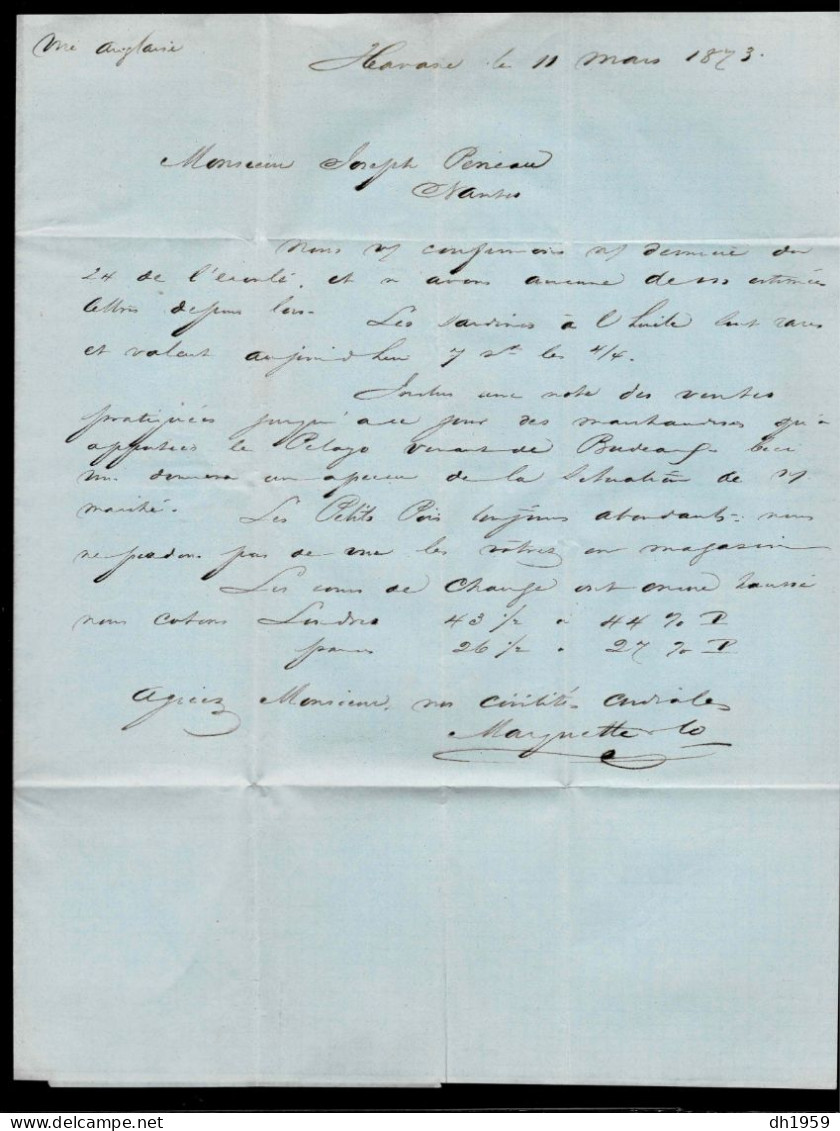 Havane le 11 mars 1873.
Monsieur Joseph Peneau
Nantes
Nous vs confirmons n/ dernière du
24 de l'écoulé, et n'avons aucune de vos estimées
lettres depuis lors. Les Sardines à l'huile sont rares
et valent aujourd'hui 7 les 4/4.
Inclus une note des ventes
pratiquées jusqu'à ce jour des marchandises qu'a
apportées le Pelayo venant de Bordeaux
donnera un aperçu de la situation de n/
marché. Les Petits Pois toujours abondants, nous
ne perdons pas de vue les vôtres en magasin
Les cours de change ont encore haussé
nous cotons Londres 43 1/2 a 44 % P
paris 26 1/2 a 27 % P
Agréez Monsieur, nos civilités cordiales
Marquette & Co
dh1959